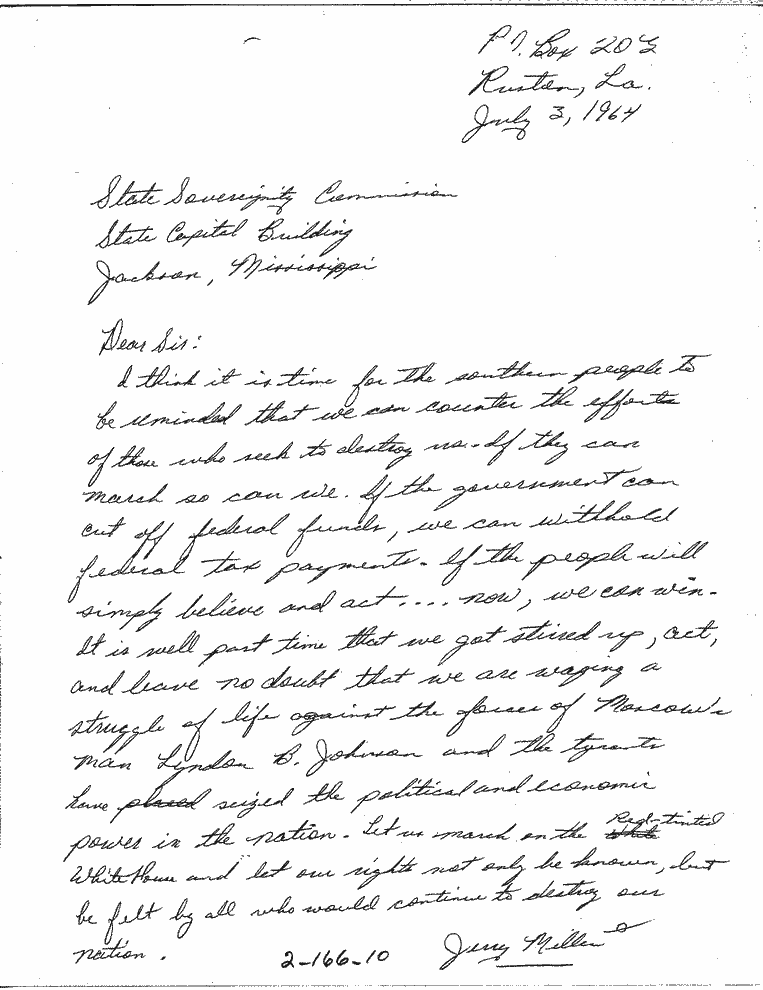 P.O. Box 202
Ruston, La.
July 3, 1964
State Sovereignity Commission
State Capital Building
Jackson, Mississippi
Dear Sir:
I think it is time for the southern people to
be reminded that we can counter the efforts
of those who seek to destroy us. If they can
march so can we. If the government can
cut off federal funds, we can withhold
federal tax payments. If the people will
simply believe and act.... now, we can win.
It is well past time that we got stirred up, act,
and leave no doubt that we are waging a
struggle of life against the forces of Moscow's
man Lyndon B. Johnson and the tyrants
have placed seized the political and economic
power in the nation. Let us march on the White Red-tinted
White House and let our rights not only be known, but
be felt by all who would continue to destroy our
nation.
2-166-10 Jerry Miller